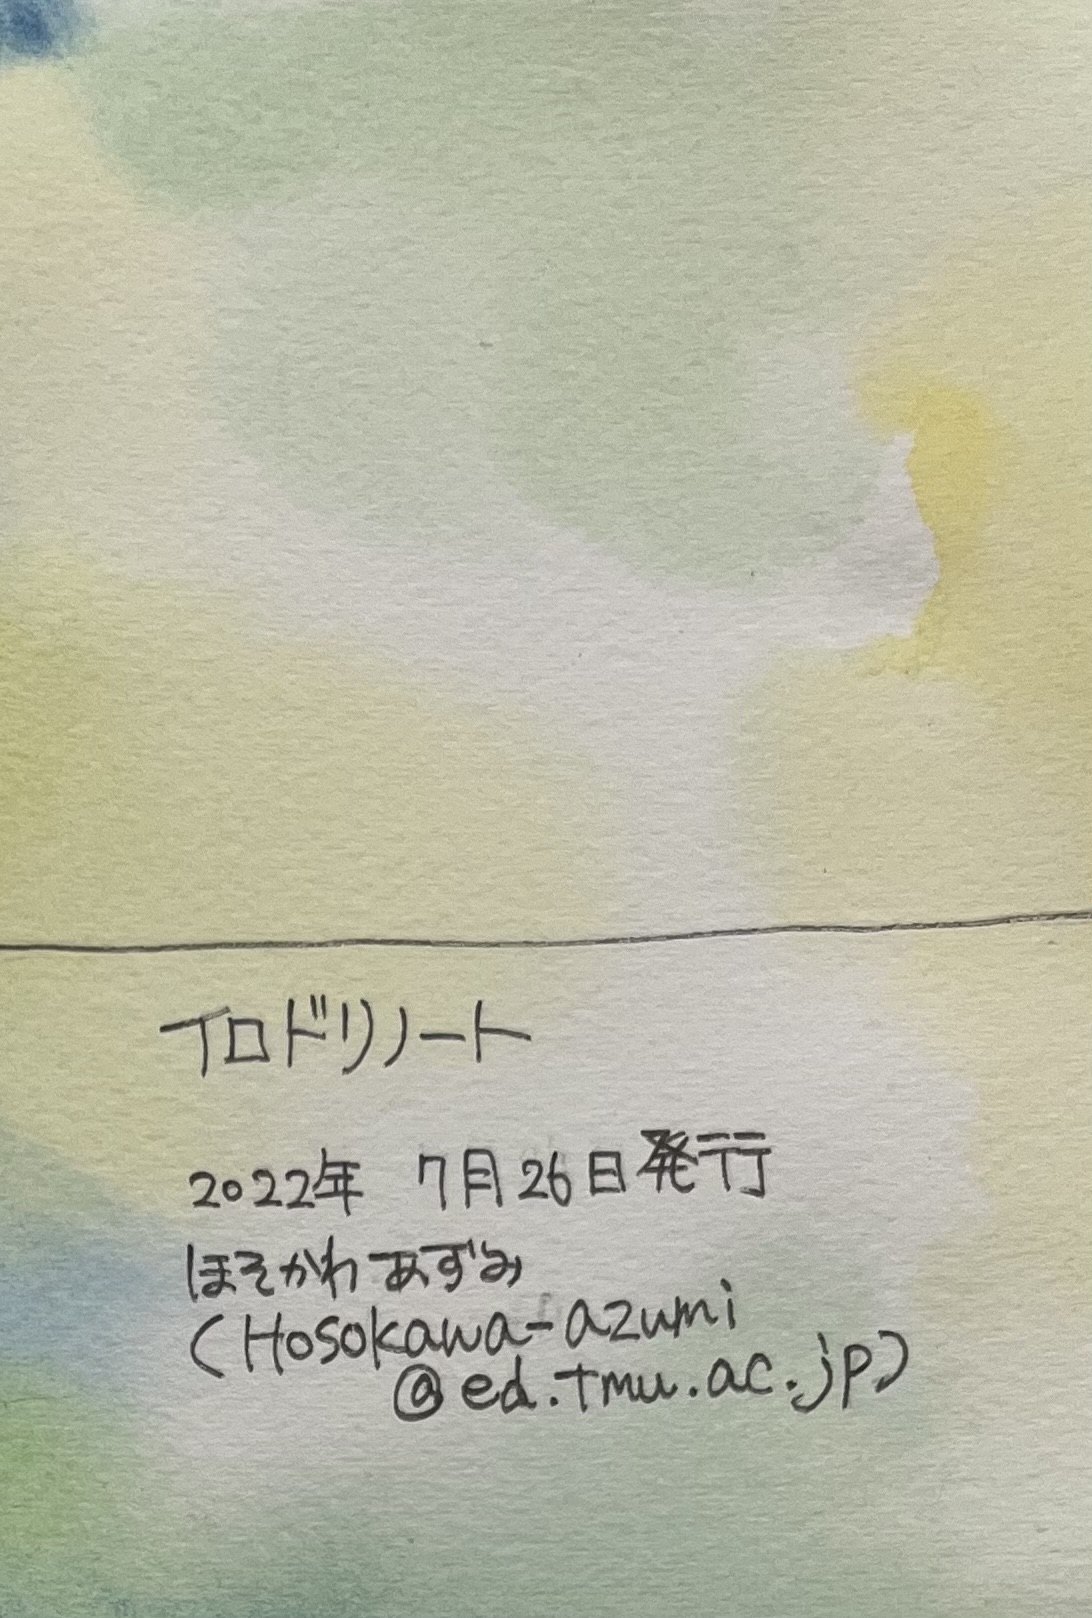 イロドリノート
2022年 7月26日発行
ほそかわあずみ
(Hosokawa-azumi
@ed.tmu.ac.jp)